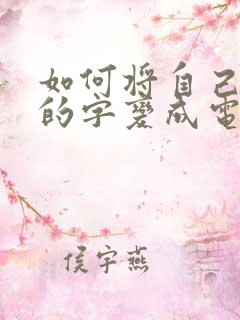 如何将自己
的字变成电
侯宇燕